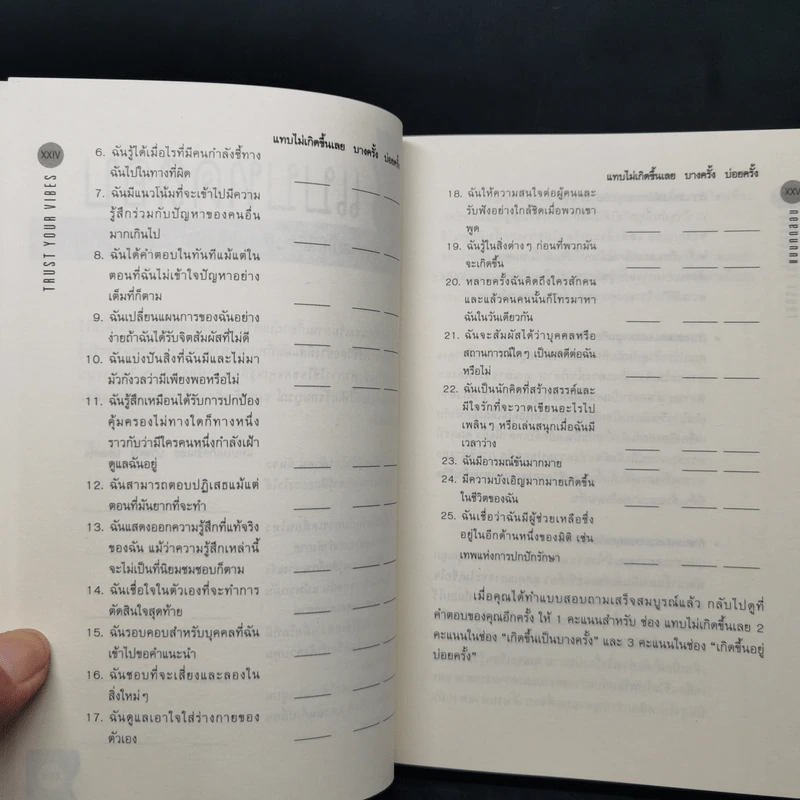 XXIV
TRUST YOUR VIBES
แทบไม่เกิดขึ้นเลย บางครั้ง บ่อยครั้ง
6. ฉันรู้ได้เมื่อไรที่มีคนกำลังชี้ทาง
ฉันไปในทางที่ผิด
7. ฉันมีแนวโน้มที่จะเข้าไปมีความ
รู้สึกร่วมกับปัญหาของคนอื่น
มากเกินไป
8. ฉันได้คำตอบในทันทีแม้แต่ใน
ตอนที่ฉันไม่เข้าใจปัญหาอย่าง
เต็มที่ก็ตาม
9. ฉันเปลี่ยนแผนการของฉันอย่าง
ง่ายถ้าฉันได้รับจิตสัมผัสที่ไม่ดี
10. ฉันแบ่งปันสิ่งที่ฉันมีและไม่มา
มัวกังวลว่ามีเพียงพอหรือไม่
11. ฉันรู้สึกเหมือนได้รับการปกป้อง
คุ้มครองไม่ทางใดก็ทางหนึ่ง
ราวกับว่ามีใครคนหนึ่งกำลังเฝ้า
ดูแลฉันอยู่
12. ฉันสามารถตอบปฏิเสธแม้แต่
ตอนที่มันยากที่จะทำ
13. ฉันแสดงออกความรู้สึกที่แท้จริง
ของฉัน แม้ว่าความรู้สึกเหล่านี้
จะไม่เป็นที่นิยมชมชอบก็ตาม
14. ฉันเชื่อใจในตัวเองที่จะทำการ
ตัดสินใจสุดท้าย
15. ฉันรอบคอบสำหรับบุคคลที่ฉัน
เข้าไปขอคำแนะนำ
16. ฉันชอบที่จะเสี่ยงและลองใน
สิ่งใหม่ๆ
17. ฉันดูแลเอาใจใส่ร่างกายของ
ตัวเอง
แทบไม่เกิดขึ้นเลย บางครั้ง บ่อยครั้ง
18. ฉันให้ความสนใจต่อผู้คนและ
รับฟังอย่างใกล้ชิดเมื่อพวกเขา
พูด
19. ฉันรู้ในสิ่งต่างๆ ก่อนที่พวกมัน
จะเกิดขึ้น
20. หลายครั้งฉันคิดถึงใครสักคน
และแล้วคนคนนั้นก็โทรมาหา
ฉันในวันเดียวกัน
21. ฉันจะสัมผัสได้ว่าบุคคลหรือ
สถานการณ์ใดๆ เป็นผลดีต่อฉัน
หรือไม่
22. ฉันเป็นนักคิดที่สร้างสรรค์และ
มีใจรักที่จะวาดเขียนอะไรไป
เพลินๆ หรือเล่นสนุกเมื่อฉันมี
เวลาว่าง
23. ฉันมีอารมณ์ขันมากมาย
24. มีความบังเอิญมากมายเกิดขึ้น
ในชีวิตของฉัน
25. ฉันเชื่อว่าฉันมีผู้ช่วยเหลือซึ่ง
อยู่ในอีกด้านหนึ่งของมิติ เช่น
เทพแห่งการปกปักรักษา
เมื่อคุณได้ทำแบบสอบถามเสร็จสมบูรณ์แล้ว กลับไปดูที่
คำตอบของคุณอีกครั้ง ให้ 1 คะแนนสำหรับ ช่อง แทบไม่เกิดขึ้นเลย 2
คะแนนในช่อง "เกิดขึ้นเป็นบางครั้ง" และ 3 คะแนนในช่อง "เกิดขึ้นอยู่
บ่อยครั้ง"
XXV